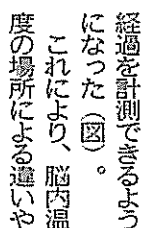 経過を計測できるよう
になった（図）。
これにより、脳内温
度の場所による違いや